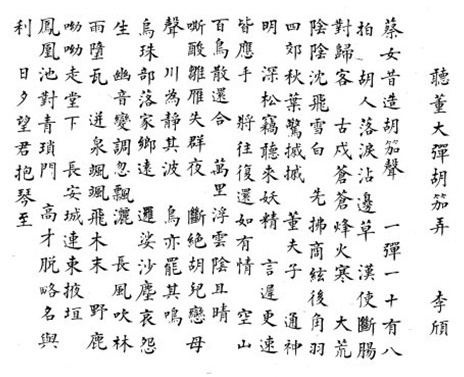 聽董大彈胡笳弄 李頎
蔡女昔造胡笳聲 一彈一十有八
拍 胡人落淚沾邊草 漢使斷腸
對歸客 古戍蒼蒼烽火寒 大荒
陰陰沈飛雪白 先拂商絃後角羽
四郊秋葉驚摵摵 董夫子 通神
明 深松竊聽來妖精 言遲更速
皆應手 將往復還如有情 空山
百鳥散還合 萬里浮雲陰且晴
嘶酸雛雁失群夜 斷絕胡兒戀母
聲 川為靜其波 鳥亦罷其鳴
烏珠部落家鄉遠 邏娑沙塵哀怨
生 幽音變調忽飄灑 長風吹林
雨墮瓦 迸泉颯颯飛木末 野鹿
呦呦走堂下 長安城連東掖垣
鳳凰池對青瑣門 高才脫略名與
利 日夕望君抱琴至